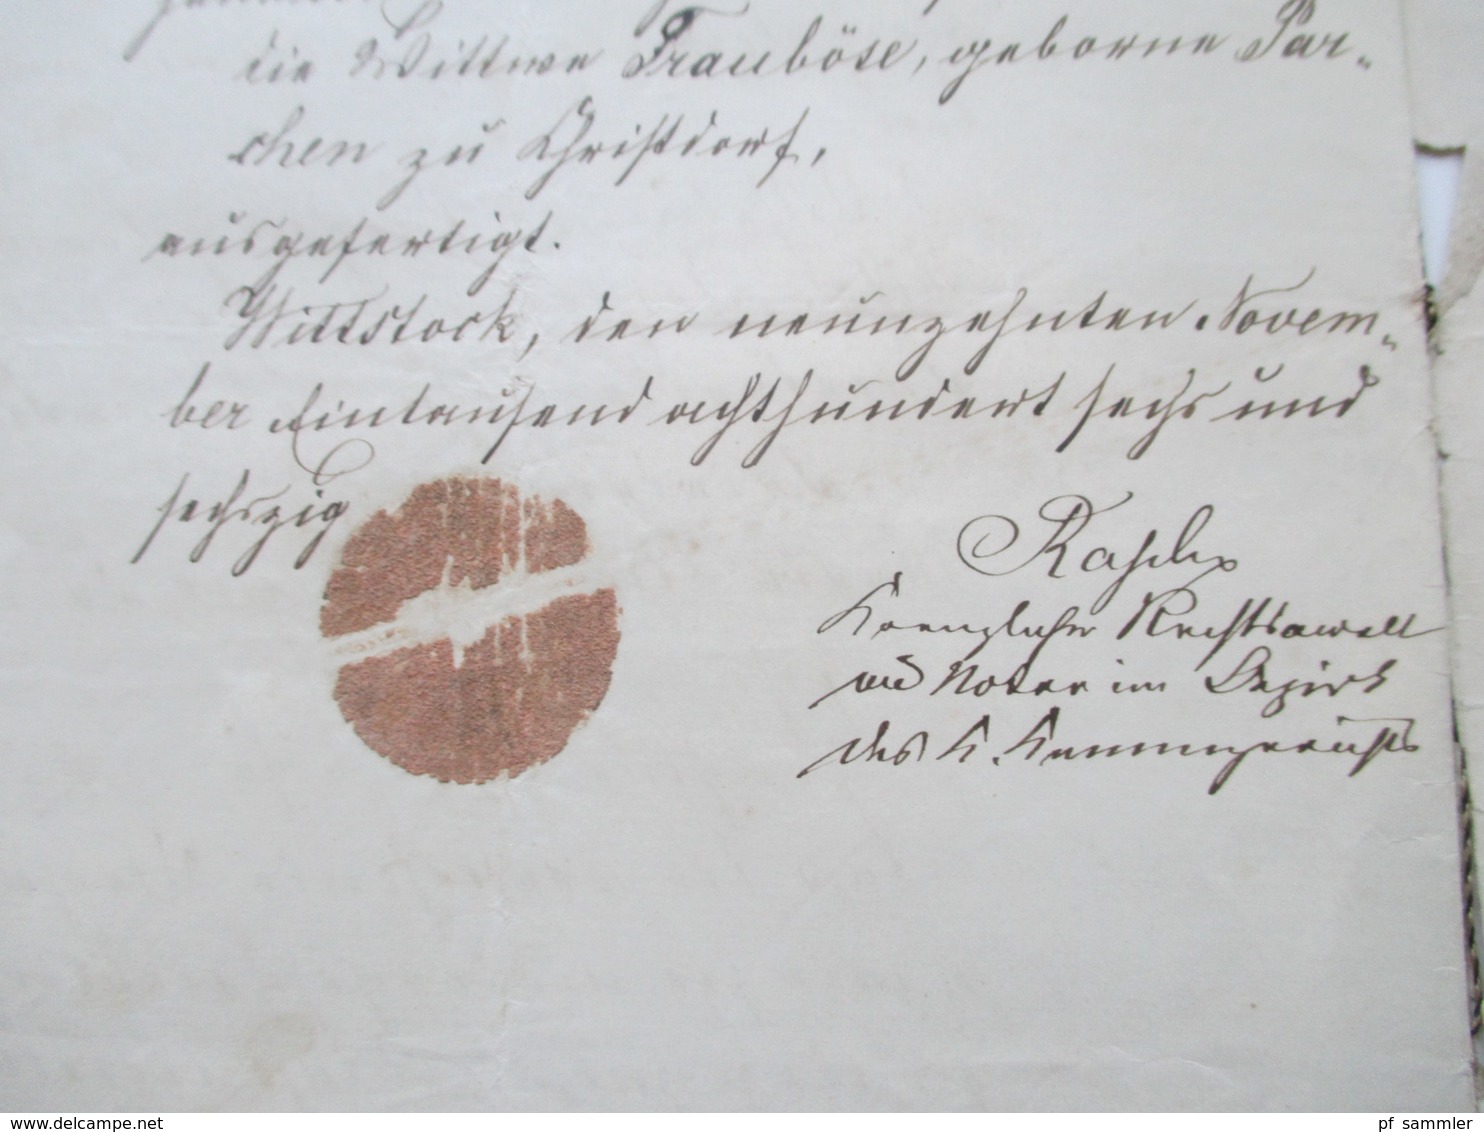 die Wittwe Frauböse, geborne Par-
chen zu Christdorf,
ausgefertigt.
Wittstock, den neunzehnten Novem-
ber Eintausend achthundert sechs und
sechszig
Koeniglicher Rechtsanwalt
und Notar im Bezirk
des K. Kammergerichts
www.delcampe.net
pf_sammler